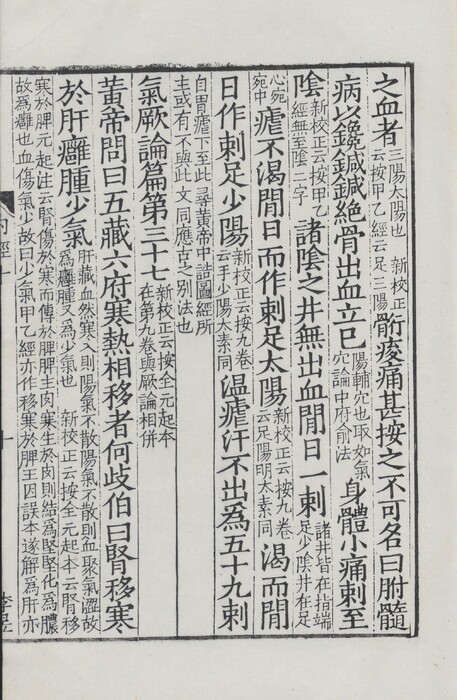 之血者三陽太陽也　新校正云按甲乙經云足三陽䯒痠痛甚按之不可名曰胕髓
病以鑱鍼鍼絕骨出血立已陽輔穴也取如氣穴論中府俞法身體小痛刺至
陰新校正云按甲乙經無至陰二字諸陰之井無出血閒日一刺諸井皆在指端足少陰井在足
心宛宛中瘧不渴閒日而作刺足太陽新校正云按九卷云足陽明太素同渴而閒
日作刺足少陽新校正云按九卷云手少陽太素同温瘧汗不出爲五十九刺
自胃瘧下至此尋黃帝中誥圖經所主或有不與此文同應古之別法也
氣厥論篇第三十七新校正云按全元起本在第九卷與厥論相併
黃帝問曰五藏六府寒熱相移者何歧伯曰腎移寒
於肝癰腫少氣肝藏血然寒入則陽氣不散陽氣不散則血聚氣澀故爲癰腫又爲少氣也　新校正云按全元起本云腎移
寒於脾元起注云腎傷於寒而傳於脾脾主肉寒生於肉則結爲堅堅化爲膿故爲癰也血傷氣少故曰少氣甲乙經亦作移寒於脾王因誤本遂解爲肝亦